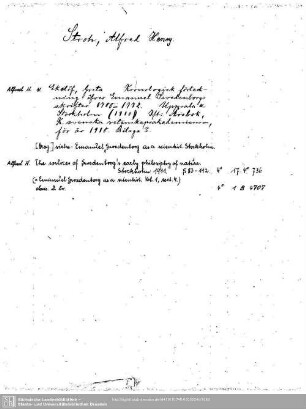 Stroh, Alfred Henry
Alfred H. u. Ekelöf, Greta Kronologisk förteck-
ning öfver Emanuel Swedenborgs
skrifter 1700-1772. Uppsala o.
Stockholm (1910) Aft: Årsbok,
K. svenska vetenskapsakademien,
för år 1910. Bilaga 3.
[Hrsg] siehe Emanuel Swedenborg as a scientist. Stockholm.
Alfred H. The sources of Swedenborg's early philosophy of nature.
Stockholm 1911. p. 83-112. 4° 17. 4° 736
(= Emanuel Swedenborg as a scientist. Vol. 1, sect. 4.)
dass. 2. Ex. 4° 1 B 4707
Sächsische Landesbibliothek -
Staats- und Universitätsbibliothek Dresden